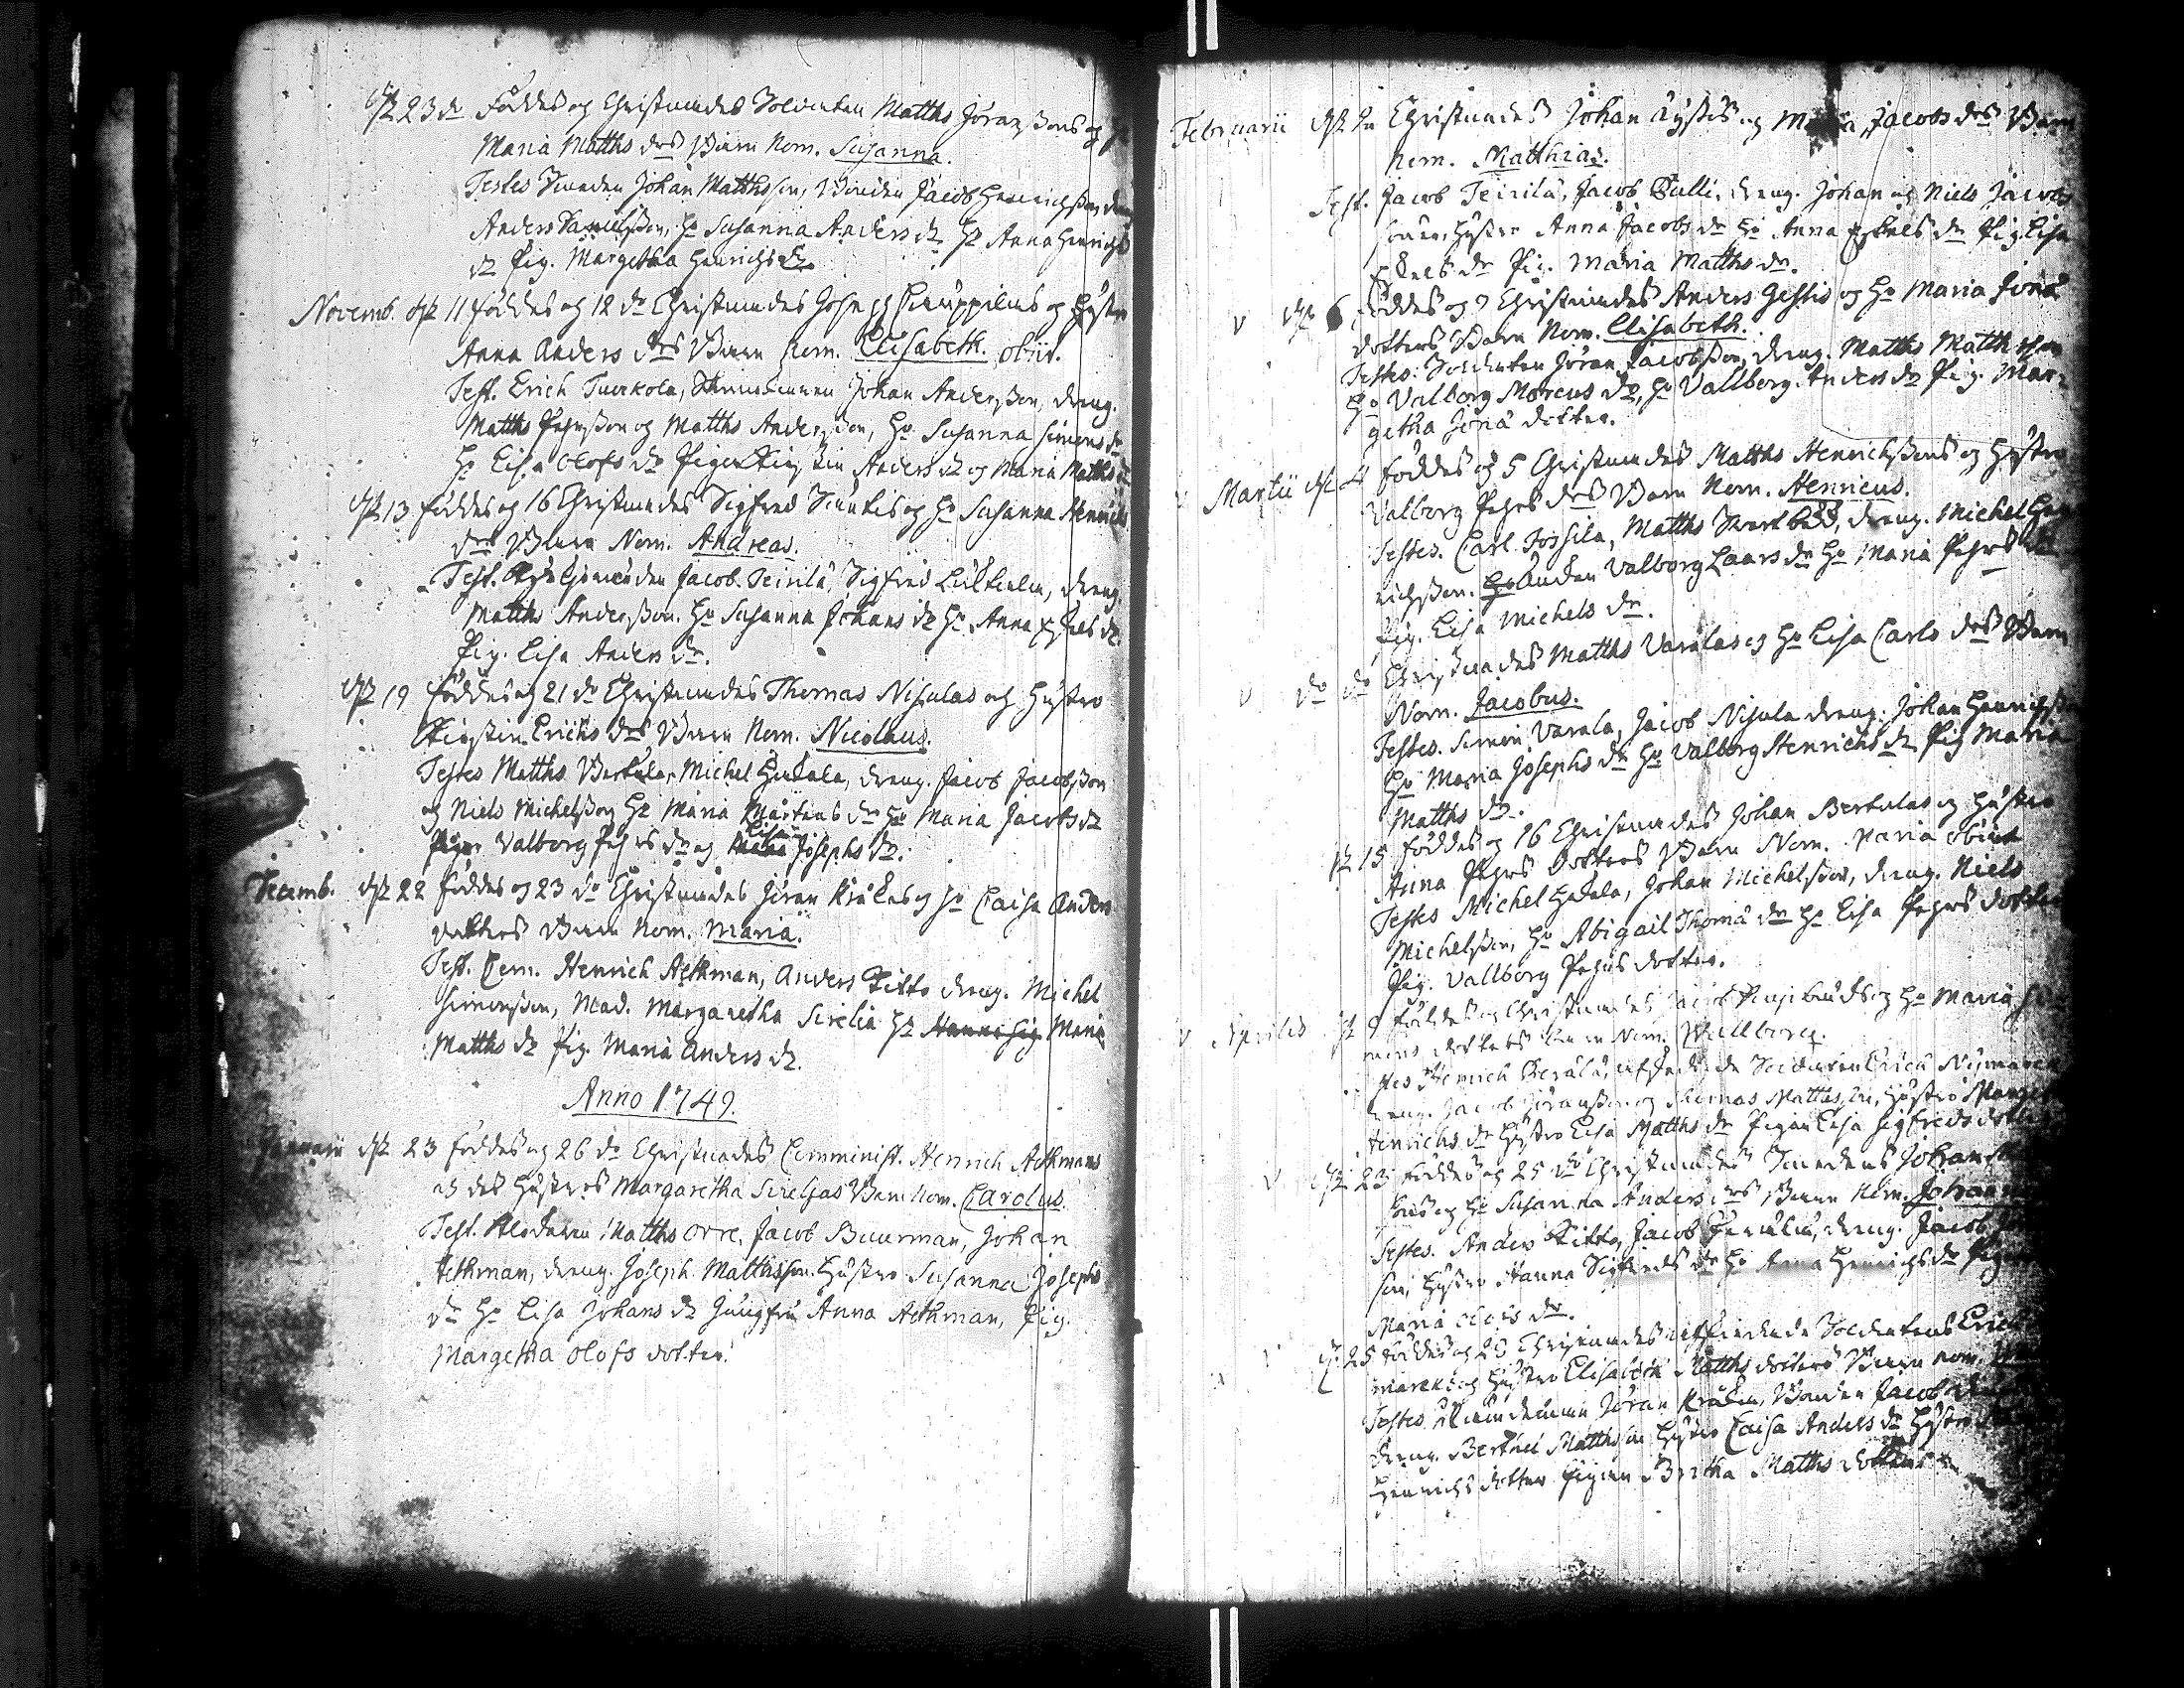 d. 23 dn föddes og Christnades Soldaten Matths Jöranssons og
Maria Matths drs Barn Nom. Susanna.
Testes Smeden Johan Mattsson, Bonden Jacob Henrichsson dreng
Anders Danielsson, Ho Susanna Anders dr Ho Anna Henrichs
dr Pig. Margetha Henrichs dr.
Novemb. d. 11 föddes og 12 do Christnades Joseph Kauppilas og Hustro
Anna Anders drs Barn Nom. Elisabeth. obiit.
Test. Erich Tuorkola, Johan Andersson, dreng.
Matths Pehrsson og Matths Andersson, Ho Susanna Simons dr
Ho Lisa Olofs dr Pigor Kirstin Anders dr og Maria Matths dr
d. 13 föddes og 16 Christnades Sigfred og Ho Susanna Henrichs
drs Barn Nom. Andreas.
Test. Jacob Teirilä, Sigfred dreng.
Matths Andersson. Ho Susanna Johans dr Ho Anna Eskels dr
Pig. Lisa Anders dr.
d. 19 föddes og 21 do Christnades Thomas Nisulas och Hustro
Kirstin Erichs drs Barn Nom. Nicolaus.
Testes Matths Bertula, Michel Hakala, dreng. Jacob Jacobsson
og Niels Michelsson Ho Maria Mårtens dr Ho Maria Jacobs dr
Pigor Valborg Pehrs dr og Lisa Josephs dr.
Decemb. d. 22 föddes og 23 do Christnades Jöran Kråkas og Ho Caisa Anders
dotters Barn Nom. Maria.
Test. Com. Henrich Aethman, Anders Titto dreng. Michel
Simonsson, Mad. Margaretha Sirelia Ho Hanna Sig Maria
Matths dr Pig. Maria Anders dr.
Anno 1749.
Januarii d. 23 föddes og 26 do Christnades Comminist. Henrich Aethmans
och des Hustros Margaretha Sireljas Barn Nom. Carolus.
Test. Klockaren Matths Orre, Jacob Buurman, Johan
Aethman, dreng. Joseph Matthsson. Hustro Susanna Josephs
dr Ho Lisa Johans dr Jungfru Anna Aethman, Pig.
Margetha Olofs dotter.
Februarii d. Christnades Johan og Maria Jacobs drs Barn
Nom. Matthias.
Test. Jacob Teirilä, Jacob Tulli, dreng. Johan og Niels Jacobs
söner, Hustro Anna Jacobs dr Ho Anna Eskels dr Pig. Lisa
Eskels dr Pig. Maria Matths dr.
d. 6 föddes og 7 Christnades Anders og Ho Maria Jona
dotters Barn Nom. Elisabeth.
Testes: Soldaten Jöran Jacobsson, dreng. Matths Matthsson
Ho Valborg Marcus dr, Ho Vallborg Anders dr Pig. Mar-
getha Jona dotter.
Martii d. 4 föddes og 5 Christnades Matths Henrichssons og Hustro
Valborg Pehrs drs Barn Nom. Henricus.
Testes. Carl Jossila, Matths dreng. Michel Hen
richsson. Enkan Valborg Laars dr Ho Maria Pehrs dr
Pig. Lisa Michels dr.
do do Christnades Matths Varalas og Ho Lisa Carls drs Barn
Nom. Jacobus.
Testes. Simon Varala, Jacob Nisula dreng. Johan Henrichsson
Ho Maria Josephs dr Ho Valborg Henrichs dr Pig Maria
Matths dr.
d. 15 föddes og 16 Christnades Johan Bertulas og Hustro
Anna Pehrs dotters Barn Nom. Maria obiit
Testes Michel Hakala, Johan Michelsson, dreng. Niels
Michelsson, Ho Abigail Thoma dr Ho Lisa Pehrs dotter
Pig. Vallborg Pehrs dotter.
Aprilis d. 9 föddes og Christnades Jacob og Ho Maria Si
mons dotters Barn Nom. Wallborg.
Testes Henrich Perälä, afskedade Soldaten Erich
dreng. Jacob Jöransson og Thomas Matthsson, Hustro Marge
Henrichs dr Hustro Lisa Matths dr Pigan Lisa Sigfreds dotter
d. 23 föddes og 25 do Christnades Smedens Johan
sons og Ho Susanna Anders drs Barn Nom. Johan
Testes. Anders Titto, Jacob dreng. Jacob
son, Hustro Hanna Sigfreds dr Ho Anna Henrichs dr Pigan
Maria Olofs dr.
d. 25 föddes og 26 Christnades afskedade Soldatens Erich
og Hustro Elisabeth Matths dotters Barn Nom.
Testes Jöran Kråka, Bonden Jacob
dreng. Berthel Matthsson Hustro Caisa Anders dr Hustro
Henrichs dotter Pigan Britha Matths dotter